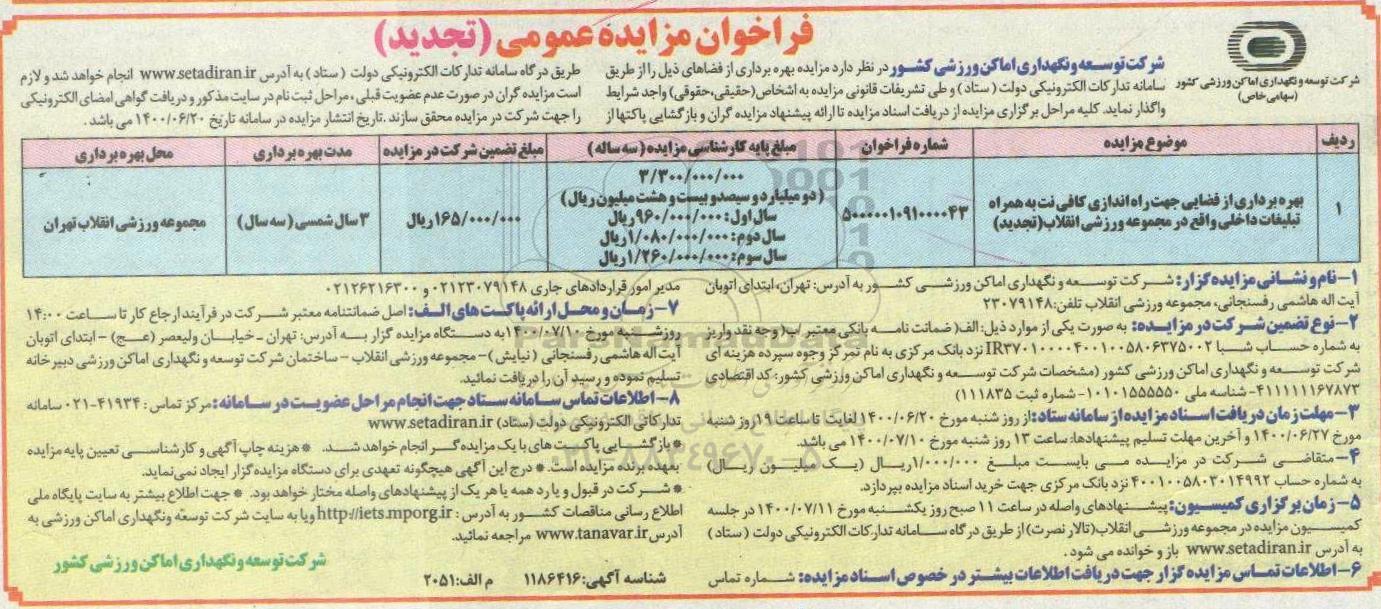 فراخوان مزایده عمومی (تجدید)
شرکت توسعه و نگهداری اماکن ورزشی کشور
(سهامی خاص)
شرکت توسعه و نگهداری اماکن ورزشی کشور در نظر دارد مزایده بهره برداری از فضاهای ذیل را از طریق
سامانه تدارکات الکترونیکی دولت (ستاد) و طی تشریفات قانونی مزایده به اشخاص (حقیقی، حقوقی) واجد شرایط
واگذار نماید. کلیه مراحل برگزاری مزایده از دریافت اسناد مزایده تا ارائه پیشنهاد مزایده گران و بازگشایی پاکتها از
طریق درگاه سامانه تدارکات الکترونیکی دولت (ستاد) به آدرس www.setadiran.ir انجام خواهد شد و لازم
است مزایده گران در صورت عدم عضویت قبلی، مراحل ثبت نام در سایت مذکور و دریافت گواهی امضای الکترونیکی
را جهت شرکت در مزایده محقق سازند. تاریخ انتشار مزایده در سامانه تاریخ ۱۴۰۰/۰۶/۲۰ می باشد.
ردیف موضوع مزایده شماره فراخوان مبلغ پایه کارشناسی مزایده (سه ساله) مبلغ تضمین شرکت در مزایده مدت بهره برداری محل بهره برداری
۱
بهره برداری از فضایی جهت راه اندازی کافی نت به همراه
تبلیغات داخلی واقع در مجموعه ورزشی انقلاب (تجدید)
۵۰۰۰۰۰۱۰۹۱۰۰۰۰۴۳
۳/۳۰۰/۰۰۰/۰۰۰
(دو میلیارد و سیصد و بیست و هشت میلیون ریال)
سال اول: ۹۶۰/۰۰۰/۰۰۰ ریال
سال دوم: ۱/۰۸۰/۰۰۰/۰۰۰ ریال
سال سوم: ۱/۲۶۰/۰۰۰/۰۰۰ ریال
۱۶۵/۰۰۰/۰۰۰ ریال
۳ سال شمسی (سه سال)
مجموعه ورزشی انقلاب تهران
۱- نام و نشانی مزایده گزار: شرکت توسعه و نگهداری اماکن ورزشی کشور به آدرس: تهران، ابتدای اتوبان
آیت اله هاشمی رفسنجانی، مجموعه ورزشی انقلاب تلفن: ۲۳۰۷۹۱۴۸
۲- نوع تضمین شرکت در مزایده: به صورت یکی از موارد ذیل: الف( ضمانت نامه بانکی معتبر ب( وجه نقد واریز
به شماره حساب شبا IR۳۷۰۱۰۰۰۰۴۰۰۱۰۰۵۸۰۶۳۷۵۰۰۲ نزد بانک مرکزی به نام تمرکز وجوه سپرده هزینه ای
شرکت توسعه و نگهداری اماکن ورزشی کشور (مشخصات شرکت توسعه و نگهداری اماکن ورزشی کشور: کد اقتصادی
۴۱۱۱۱۱۱۶۷۸۷۳- شناسه ملی ۱۰۱۰۱۵۵۵۵۵۰- شماره ثبت ۱۱۱۸۳۵)
۳- مهلت زمان دریافت اسناد مزایده از سامانه ستاد: از روز شنبه مورخ ۱۴۰۰/۰۶/۲۰ لغایت تا ساعت ۱۹ روز شنبه
مورخ ۱۴۰۰/۰۶/۲۷ و آخرین مهلت تسلیم پیشنهادها: ساعت ۱۳ روز شنبه مورخ ۱۴۰۰/۰۷/۱۰ می باشد.
۴- متقاضی شرکت در مزایده می بایست مبلغ ۱/۰۰۰/۰۰۰ ریال (یک میلیون ریال)
به شماره حساب ۴۰۰۱۰۰۵۸۰۳۰۱۴۹۹۲ نزد بانک مرکزی جهت خرید اسناد مزایده بپردازد.
۵- زمان برگزاری کمیسیون: پیشنهادهای واصله در ساعت ۱۱ صبح روز یکشنبه مورخ ۱۴۰۰/۰۷/۱۱ در جلسه
کمیسیون مزایده در مجموعه ورزشی انقلاب (تالار نصرت) از طریق درگاه سامانه تدارکات الکترونیکی دولت (ستاد)
به آدرس www.setadiran.ir باز و خوانده می شود.
۶- اطلاعات تماس مزایده گزار جهت دریافت اطلاعات بیشتر در خصوص اسناد مزایده: شماره تماس
مدیر امور قراردادهای جاری ۰۲۱۲۳۰۷۹۱۴۸ و ۰۲۱۲۶۲۱۶۳۰۰
۷- زمان و محل ارائه پاکت های الف: اصل ضمانتنامه معتبر شرکت در فرآیند ارجاع کار تا ساعت ۱۴:۰۰
روز شنبه مورخ ۱۴۰۰/۰۷/۱۰ به دستگاه مزایده گزار به آدرس: تهران - خیابان ولیعصر (عج) - ابتدای اتوبان
آیت اله هاشمی رفسنجانی (نیایش) - مجموعه ورزشی انقلاب - ساختمان شرکت توسعه و نگهداری اماکن ورزشی دبیرخانه
تسلیم نموده و رسید آن را دریافت نمائید.
۸- اطلاعات تماس سامانه ستاد جهت انجام مراحل عضویت در سامانه: مرکز تماس: ۴۱۹۳۴-۰۲۱ سامانه
تدارکاتی الکترونیکی دولت (ستاد) www.setadiran.ir
* بازگشایی پاکت های با یک مزایده گر انجام خواهد شد. * هزینه چاپ آگهی و کارشناسی تعیین پایه مزایده
بعهده برنده مزایده است. * درج این آگهی هیچگونه تعهدی برای دستگاه مزایده گزار ایجاد نمی نماید.
* شرکت در قبول و یا رد همه یا هر یک از پیشنهادهای واصله مختار خواهد بود. * جهت اطلاع بیشتر به سایت پایگاه ملی
اطلاع رسانی مناقصات کشور به آدرس: http://iets.mporg.ir و یا به سایت شرکت توسعه ونگهداری اماکن ورزشی به
آدرس www.tanavar.ir مراجعه نمائید.
شرکت توسعه و نگهداری اماکن ورزشی کشور
شناسه آگهی: ۱۱۸۶۴۱۶ م الف: ۲۰۵۱
ParsNamadData
۰۲۱-۸۸۳۴۹۶۷۰-۵